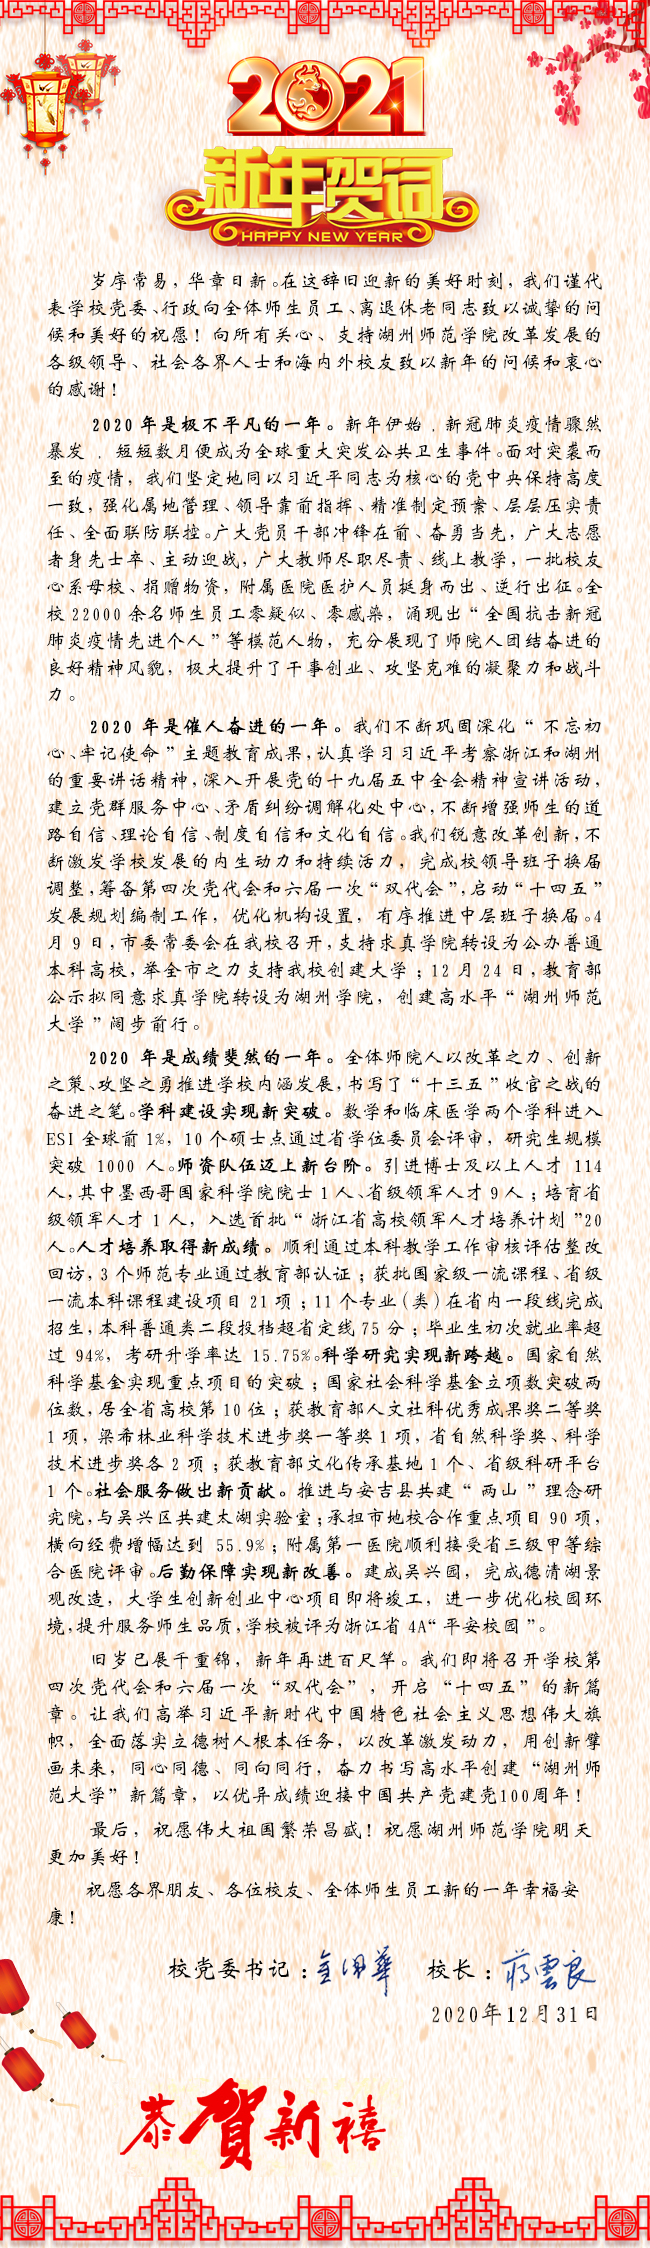 2021
新年贺词
HAPPY NEW YEAR
岁序常易，华章日新。在这辞旧迎新的美好时刻，我们谨代
表学校党委、行政向全体师生员工、离退休老同志致以诚挚的问
候和美好的祝愿！向所有关心、支持湖州师范学院改革发展的
各级领导、社会各界人士和海内外校友致以新年的问候和衷心
的感谢！
2020 年是极不平凡的一年。新年伊始，新冠肺炎疫情骤然
暴发，短短数月便成为全球重大突发公共卫生事件。面对突袭而
至的疫情，我们坚定地同以习近平同志为核心的党中央保持高度
一致，强化属地管理、领导靠前指挥、精准制定预案、层层压实责
任、全面联防联控。广大党员干部冲锋在前、奋勇当先，广大志愿
者身先士卒、主动迎战，广大教师尽职尽责、线上教学，一批校友
心系母校、捐赠物资，附属医院医护人员挺身而出、逆行出征。全
校 22000 余名师生员工零疑似、零感染，涌现出“全国抗击新冠
肺炎疫情先进个人”等模范人物，充分展现了师院人团结奋进的
良好精神风貌，极大提升了干事创业、攻坚克难的凝聚力和战斗
力。
2020 年是催人奋进的一年。我们不断巩固深化“不忘初
心、牢记使命”主题教育成果，认真学习习近平考察浙江和湖州
的重要讲话精神，深入开展党的十九届五中全会精神宣讲活动，
建立党群服务中心、矛盾纠纷调解化处中心，不断增强师生的道
路自信、理论自信、制度自信和文化自信。我们锐意改革创新，不
断激发学校发展的内生动力和持续活力，完成校领导班子换届
调整，筹备第四次党代会和六届一次“双代会”，启动“十四五”
发展规划编制工作，优化机构设置，有序推进中层班子换届。4
月 9 日，市委常委会在我校召开，支持求真学院转设为公办普通
本科高校，举全市之力支持我校创建大学；12 月 24 日，教育部
公示拟同意求真学院转设为湖州学院，创建高水平“湖州师范
大学”阔步前行。
2020 年是成绩斐然的一年。全体师院人以改革之力、创新
之策、攻坚之勇推进学校内涵发展，书写了“十三五”收官之战的
奋进之笔。学科建设实现新突破。数学和临床医学两个学科进入
ESI 全球前 1%，10 个硕士点通过省学位委员会评审，研究生规模
突破 1000 人。师资队伍迈上新台阶。引进博士及以上人才 114
人，其中墨西哥国家科学院院士 1 人、省级领军人才 9 人；培育省
级领军人才 1 人，入选首批“浙江省高校领军人才培养计划”20
人。人才培养取得新成绩。顺利通过本科教学工作审核评估整改
回访，3 个师范专业通过教育部认证；获批国家级一流课程、省级
一流本科课程建设项目 21 项；11 个专业（类）在省内一段线完成
招生，本科普通类二段投档超省定线 75 分；毕业生初次就业率超
过 94%，考研升学率达 15.75%。科学研究实现新跨越。国家自然
科学基金实现重点项目的突破；国家社会科学基金立项数突破两
位数，居全省高校第 10 位；获教育部人文社科优秀成果奖二等奖
1 项，梁希林业科学技术进步奖一等奖 1 项，省自然科学奖、科学
技术进步奖各 2 项；获教育部文化传承基地 1 个、省级科研平台
1 个。社会服务做出新贡献。推进与安吉县共建“两山”理念研
究院，与吴兴区共建太湖实验室；承担市地校合作重点项目 90 项，
横向经费增幅达到 55.9%；附属第一医院顺利接受省三级甲等综
合医院评审。后勤保障实现新改善。建成吴兴园，完成德清湖景
观改造，大学生创新创业中心项目即将竣工，进一步优化校园环
境，提升服务师生品质，学校被评为浙江省 4A“平安校园”。
旧岁已展千重锦，新年再进百尺竿。我们即将召开学校第
四次党代会和六届一次“双代会”，开启“十四五”的新篇
章。让我们高举习近平新时代中国特色社会主义思想伟大旗
帜，全面落实立德树人根本任务，以改革激发动力，用创新擘
画未来，同心同德、同向同行，奋力书写高水平创建“湖州师
范大学”新篇章，以优异成绩迎接中国共产党建党100周年！
最后，祝愿伟大祖国繁荣昌盛！祝愿湖州师范学院明天
更加美好！
祝愿各界朋友、各位校友、全体师生员工新的一年幸福安
康！
校党委书记：金佩華 校长：蔣雲良
2020年12月31日
恭賀新禧